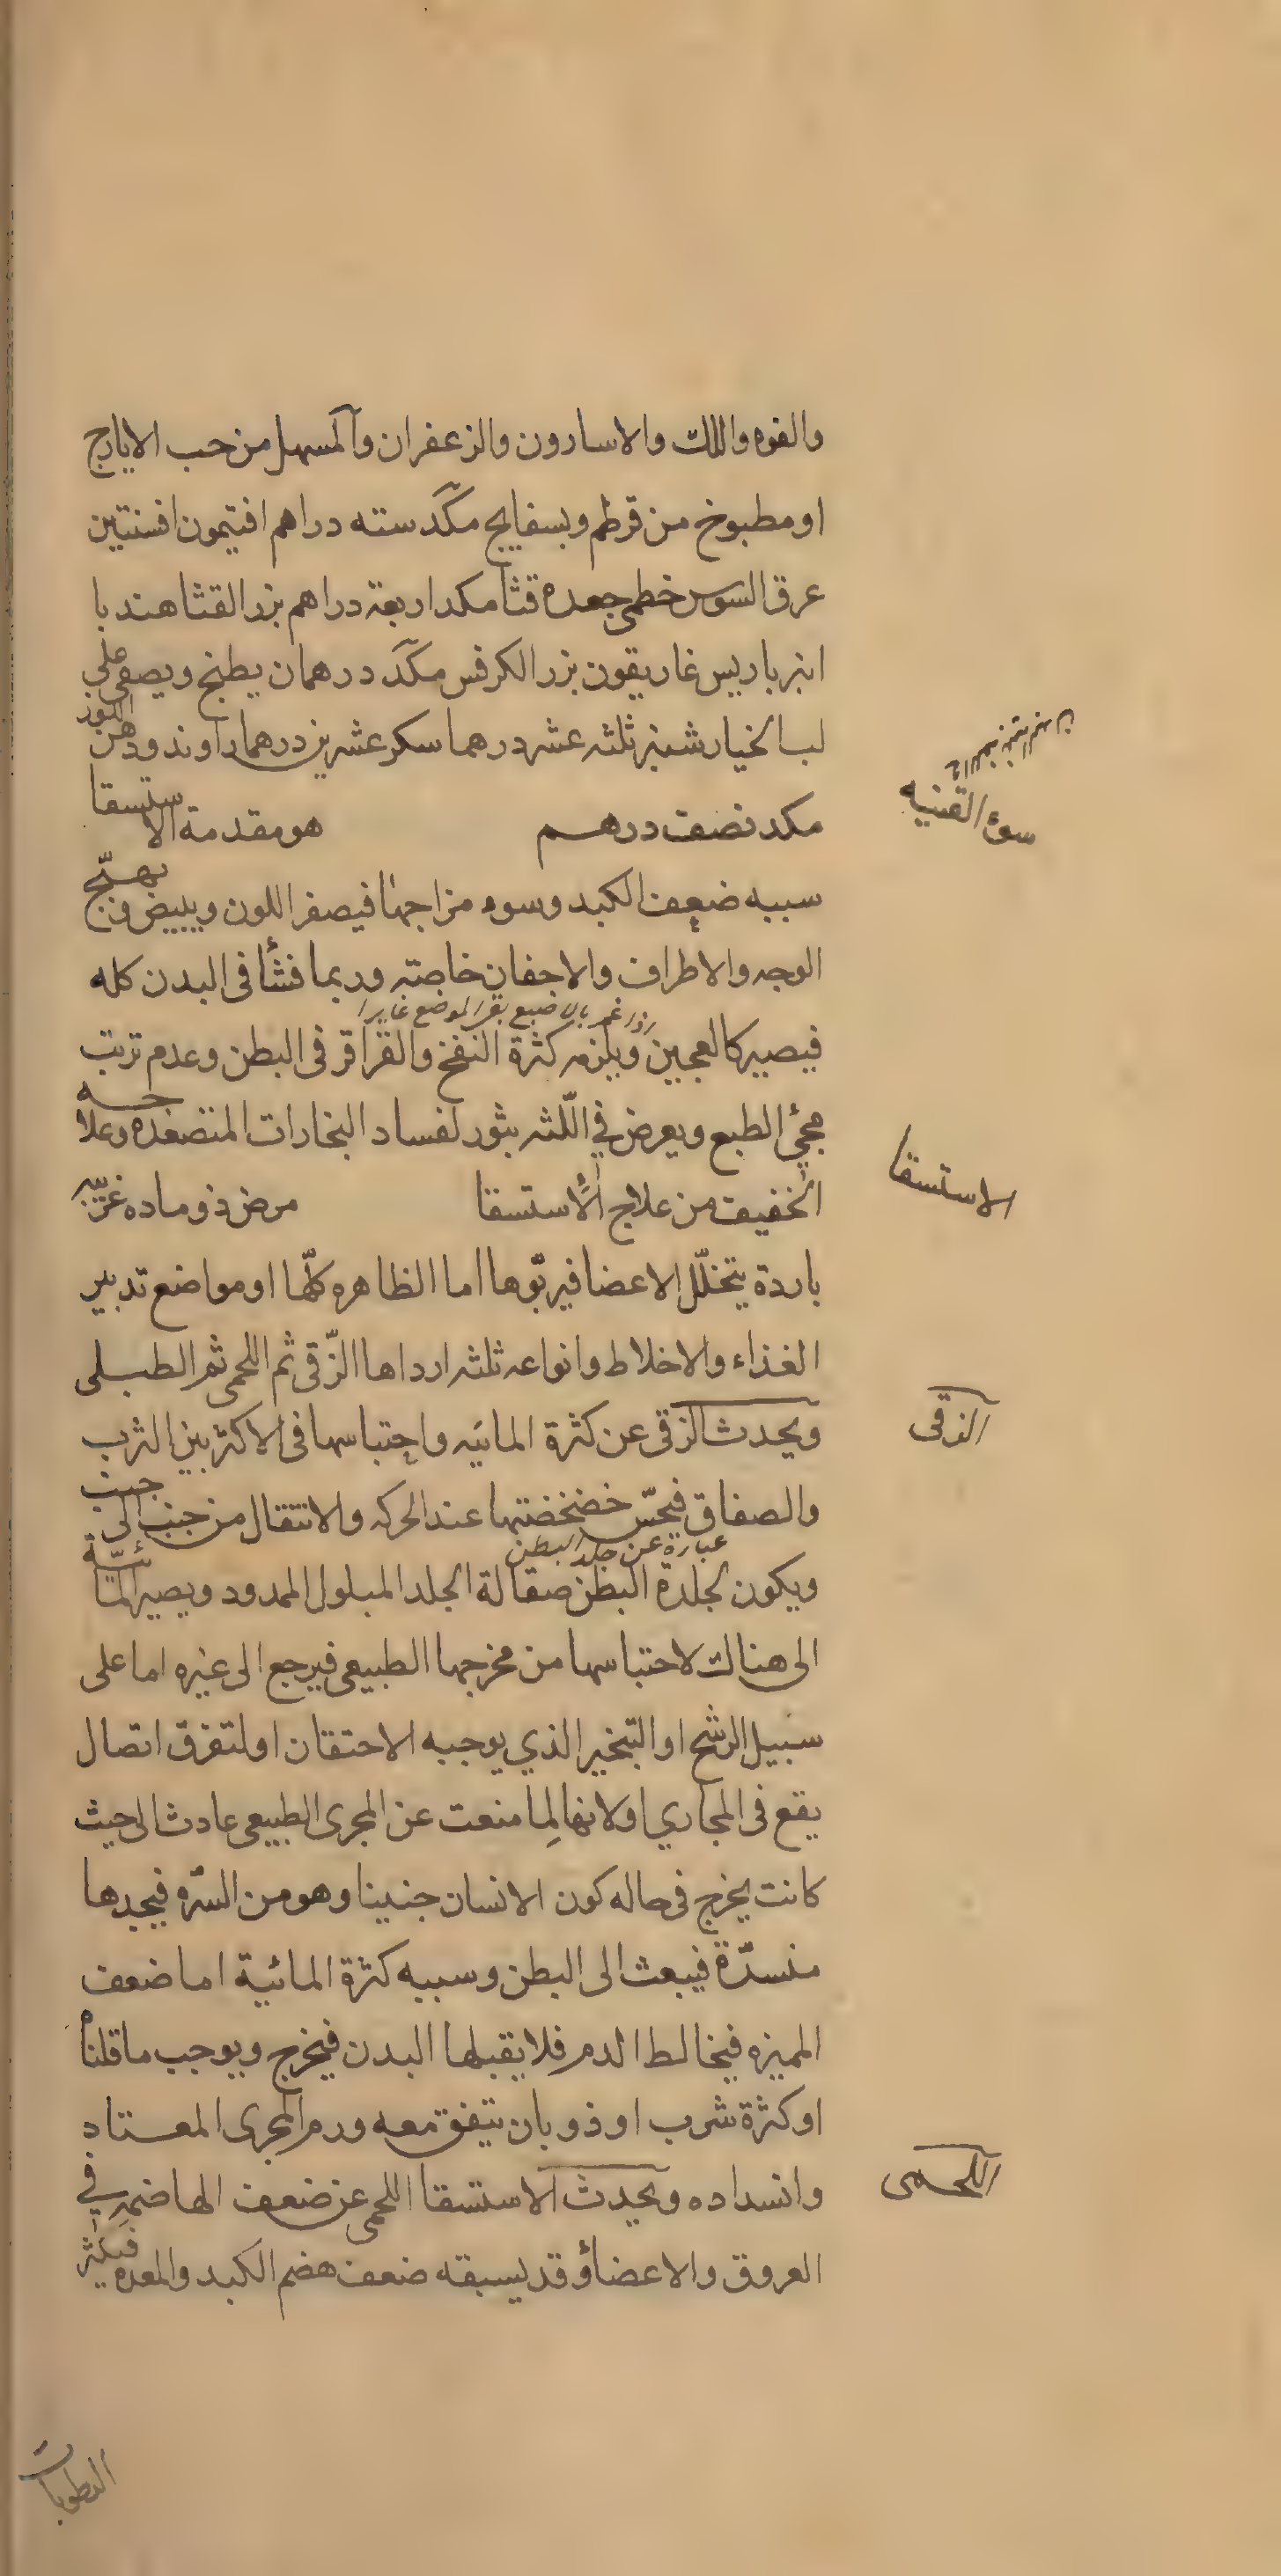 والفوه واللك والاسارون والزعفران والمسهل من حب الايارج
او مطبوخ من قرطم وبسفايج مكد ستة دراهم افتيمون افسنتين
عرق السوس خطمى جعده قثا مكد اربعة دراهم بزر القثا هندبا
انبرباريس غاريقون بزر الكرفس مكد درهمان يطبخ ويصفى على
لب الخيارشنبر ثلثه عشر درهما سكر عشرين درهما راوند ودهن اللوز
مكد نصف درهم هو مقدمة الاستسقا
سوء القنيه
سببه ضعف الكبد وسوء مزاجها فيصفر اللون ويبيض وبهيج
الوجه والاطراف والاجفان خاصة وربما فشأ فى البدن كله
اذا غمر بالاصبع بقى الموضع غايرا
فيصير كالعجين ويلزمه كثرة النفخ والقراقر فى البطن وعدم ترتب
مجئ الطبع ويعرض في اللثه بثور لفساد البخارات المتصعده وعلاجه
الخفيف من علاج الأستسقا مرض ذو ماده غريبه
الاستسقا
باردة يتخلل الاعضا فيربوها اما الظاهره كلها او مواضع تدبير
الغذاء والاخلاط وانواعه ثلثه ارداها الزقى ثم اللحمى ثم الطبلى
ويحدث الزقى عن كثرة المائيه واحتباسها فى الاكثر بين الثرب
الزقى
والصفاق فيحس خضخضتها عند الحركه والانتقال من جنب الى جنب
عبارة عن جلد البطن
ويكون لجلدة البطن صقالة الجلد المبلول الممدود ويصير المائية
الى هناك لاحتباسها من مخرجها الطبيعى فيرجع الى غيره اما على
سبيل الرشح او التبخير الذي يوجبه الاحتقان او لتفرق اتصال
يقع فى المجاري او لانها لما منعت عن المجرى الطبيعى عادت الى حيث
كانت يخرج فى حاله كون الانسان جنينا وهو من السره فيجدها
منسدة فيبعث الى البطن وسببه كثرة المائية اما ضعف
المميزه فيخالط الدم فلا يقبلها البدن فيخرج ويوجب ما قلناه
او كثرة شرب او ذوبان يتفق معه ورم المجرى المعتاد
وانسداده ويحدث الاستسقا اللحمى عن ضعف الهاضمه في
اللحمى
العروق والاعضا وقد يسبقه ضعف هضم الكبد والمعده فيكثر
الرطوبات